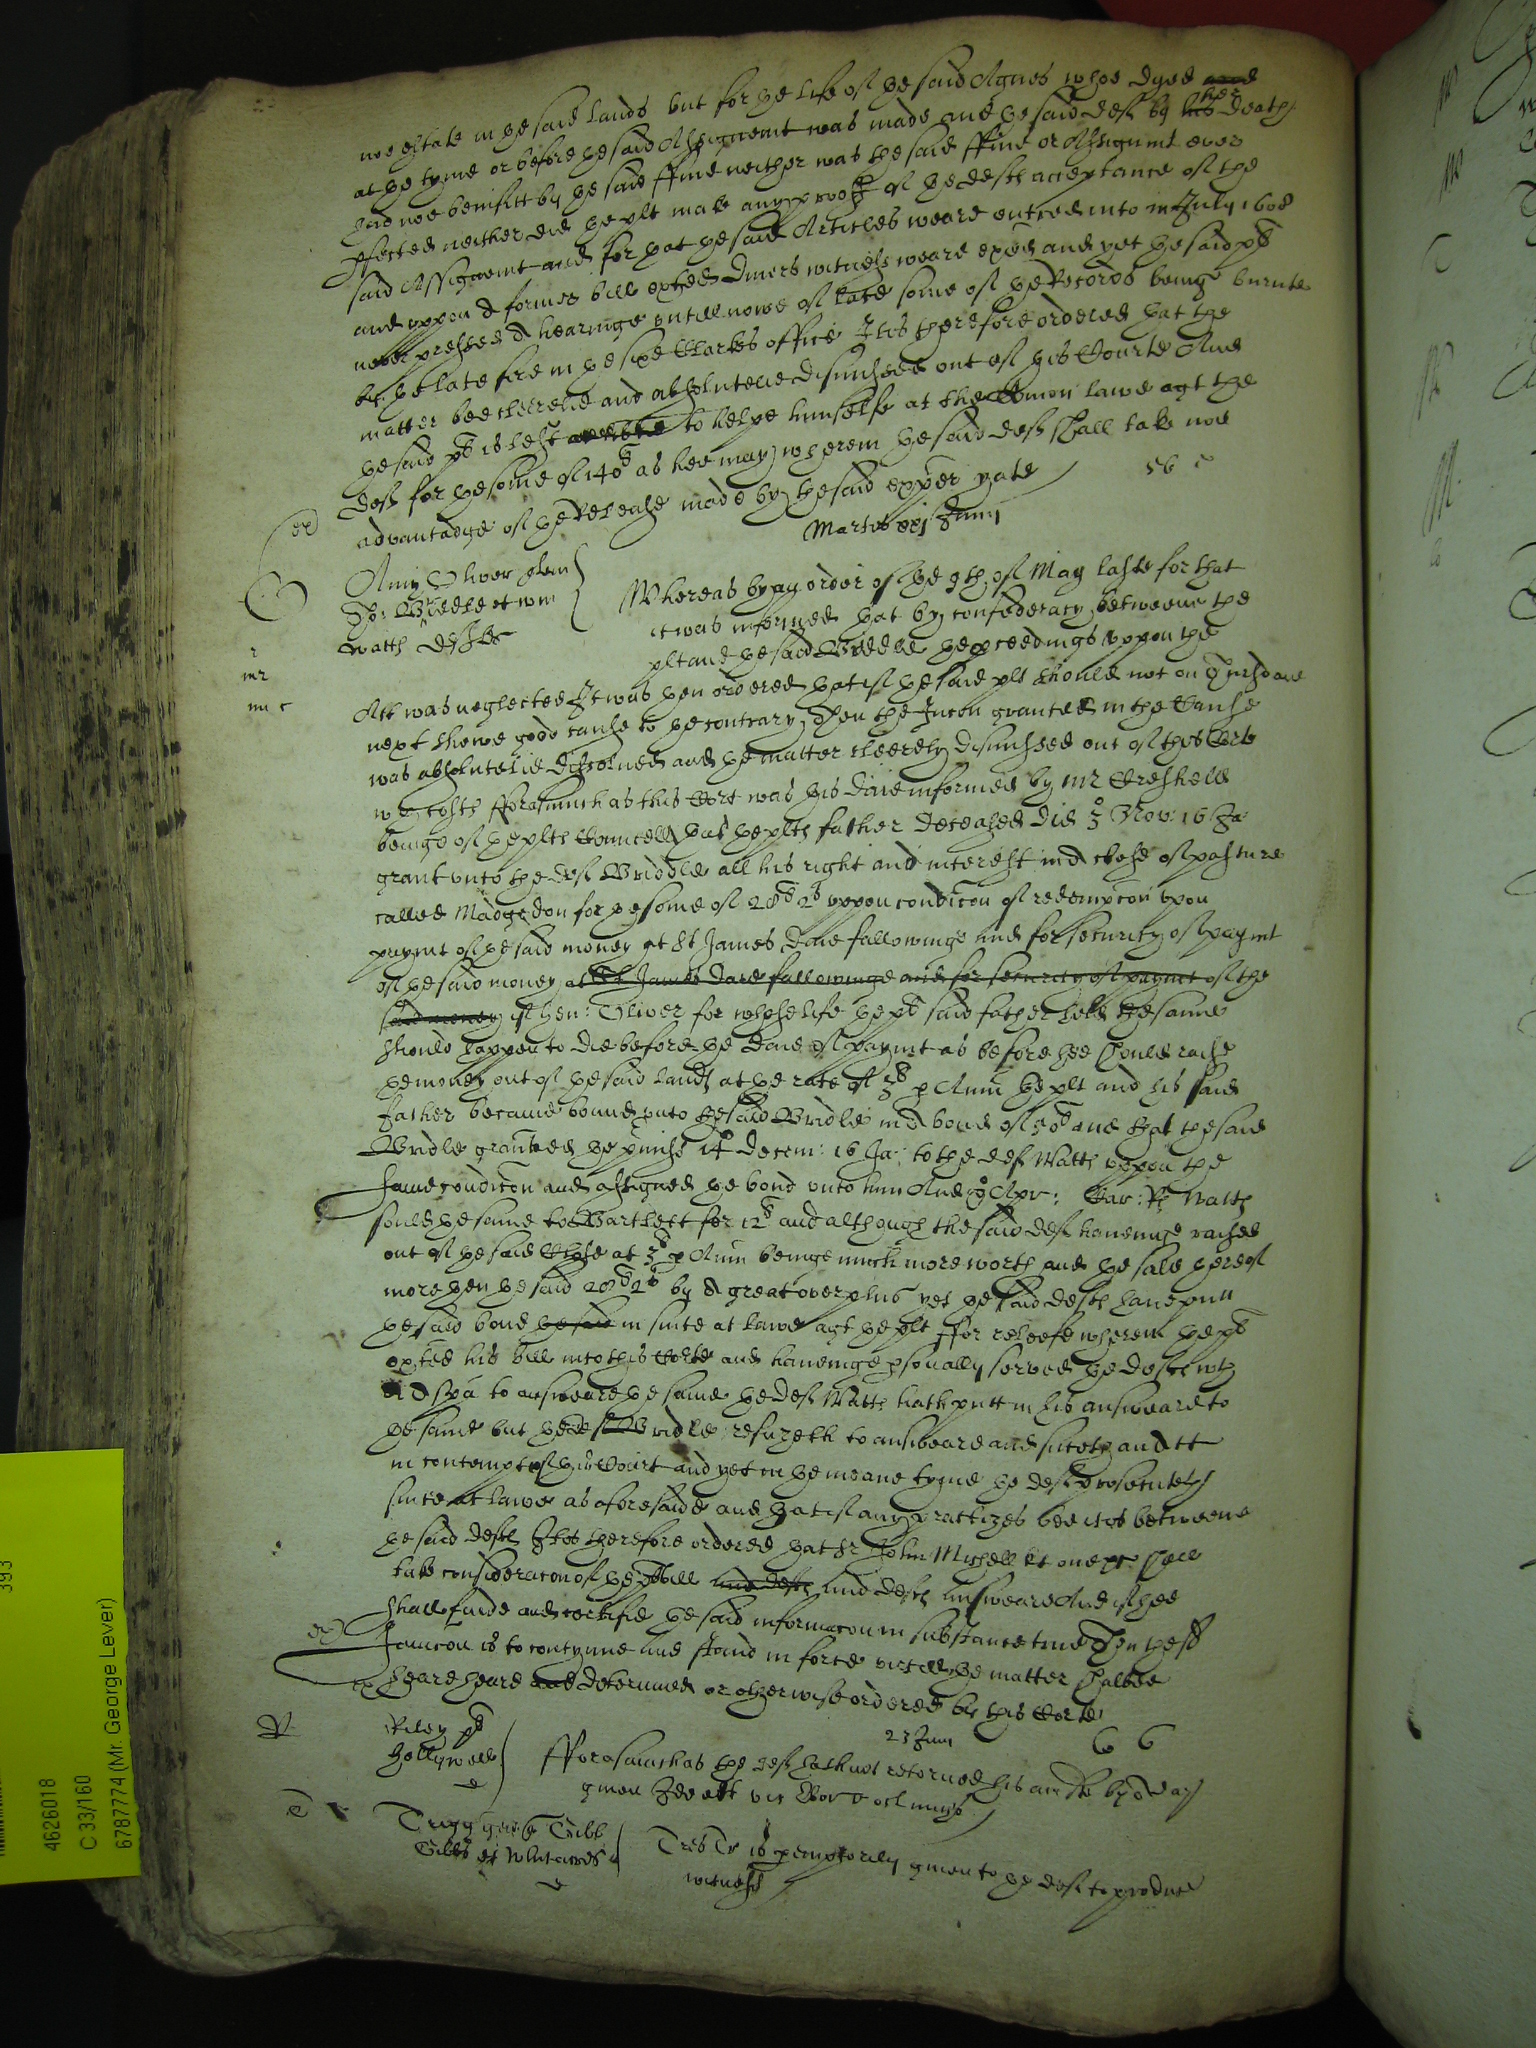 noe estate in the said lands but for the life of the said Agnes whoe dyed
at the tyme or before the said Assignemt was made and the said deft by her death
had noe benifitt by the said ffine neither was the said ffine or Assignmt ever
pfected neither did the plt make any proofe of the defts acceptance of the
said Assignemt and for that the said Articles weare entred into in July 1608
and uppon a former bill exhted divers witnesses weare exed and yet the said plt
never pressed a hearinge untill nowe of late some of the Records beinge burnte
by the late fire in the sixe Clarkes office It is therefore ordered that the
matter bee cleerelie and absolutelie dismissed out of this Courte And
the said plt is left to helpe himselfe at the Comon lawe agt the
deft for the some of 140l as hee may wherein the said deft shall take noe
advantadge of the Release made by the said exper yate
Martis xxj Junij
Amy Oliver plen
Tho: Bridle et Wm
Watts defts
Whereas by an order of the 9th of May laste for that
it was informed that by confederacy betweene the
plt and the said Bridle the proceedings uppon the
Att was neglected It was then ordered that if the said plt should not on Thursdaie
next shewe good cause to the contrary Then the Iniucon graunted in the Cause
was absolutelie dissolved and the matter cleerely dismissed out of this Corte
wth costs fforasmuch as this Cort was this daie informed by Mr Creskeld
beinge of the plts Councell that the plts father deceased did 3o Nov: 16 Ja
grant unto the deft Briddle all his right and interest in a close of pasture
called Madgedon for the some of 28l 2s uppon condicon of redempcon upon
paymt of the said money at St James daie followinge And for security of paymt
of the said money at St James daie followinge and for security of paymt of the
said money if Hen: Oliver for whose life the plts said father held the same
should happen to die before the daie of paymt as before hee should raise
the money out of the said lands at the rate of 3l p Ann the plt and his said
father became bound unto the said Bridle in a bond of 50l and that the said
Bridle graunted the pmisses 14o Decem: 16 Ja: to the deft Watts uppon the
same condicon and assigned the bond unto him And 9o Apr: Car: Rs Watts
sould the same to Bartlett for 12l and although the said deft haveinge raised
out of the said Close at 3l p Ann beinge much more worth and the sale thereof
more then the said 28l 2s by a great overplus yet the said defts have putt
the said bond the said in suite at lawe agt the plt ffor releefe wherein the plt
exhted his bill into this Corte and haveinge psonally served the defts wth
a Spa to answeare the same the deft Watts hath putt in his answeare to
the same but the deft Bridle refuzeth to answeare and sitteth an Att
in contempt of this Court and yet in the meane tyme the deft prosecuteth
suite at lawe as aforesaid and that if any practizes bee it is betweene
the said defts It is therefore ordered that Sr John Michell kt one &c shall
take consideracon of the plts bill and defts Answeare And if hee
shall finde and certifie the said informacon in substance true Then the sd
Iniuncon is to contynue and stand in force untill the matter shalbee
heare heard and determined or otherwise ordered by this Corte
23 Junij
Riley plt
Hollywell
fforasmuch as the deft hath not retorned his answere by a day
given
Trigg
Gibbs et Whitacres
is peremptorily given to the deft to produce
witnesses
4626018
C 33/160
6787774 (Mr. George Lever)
393